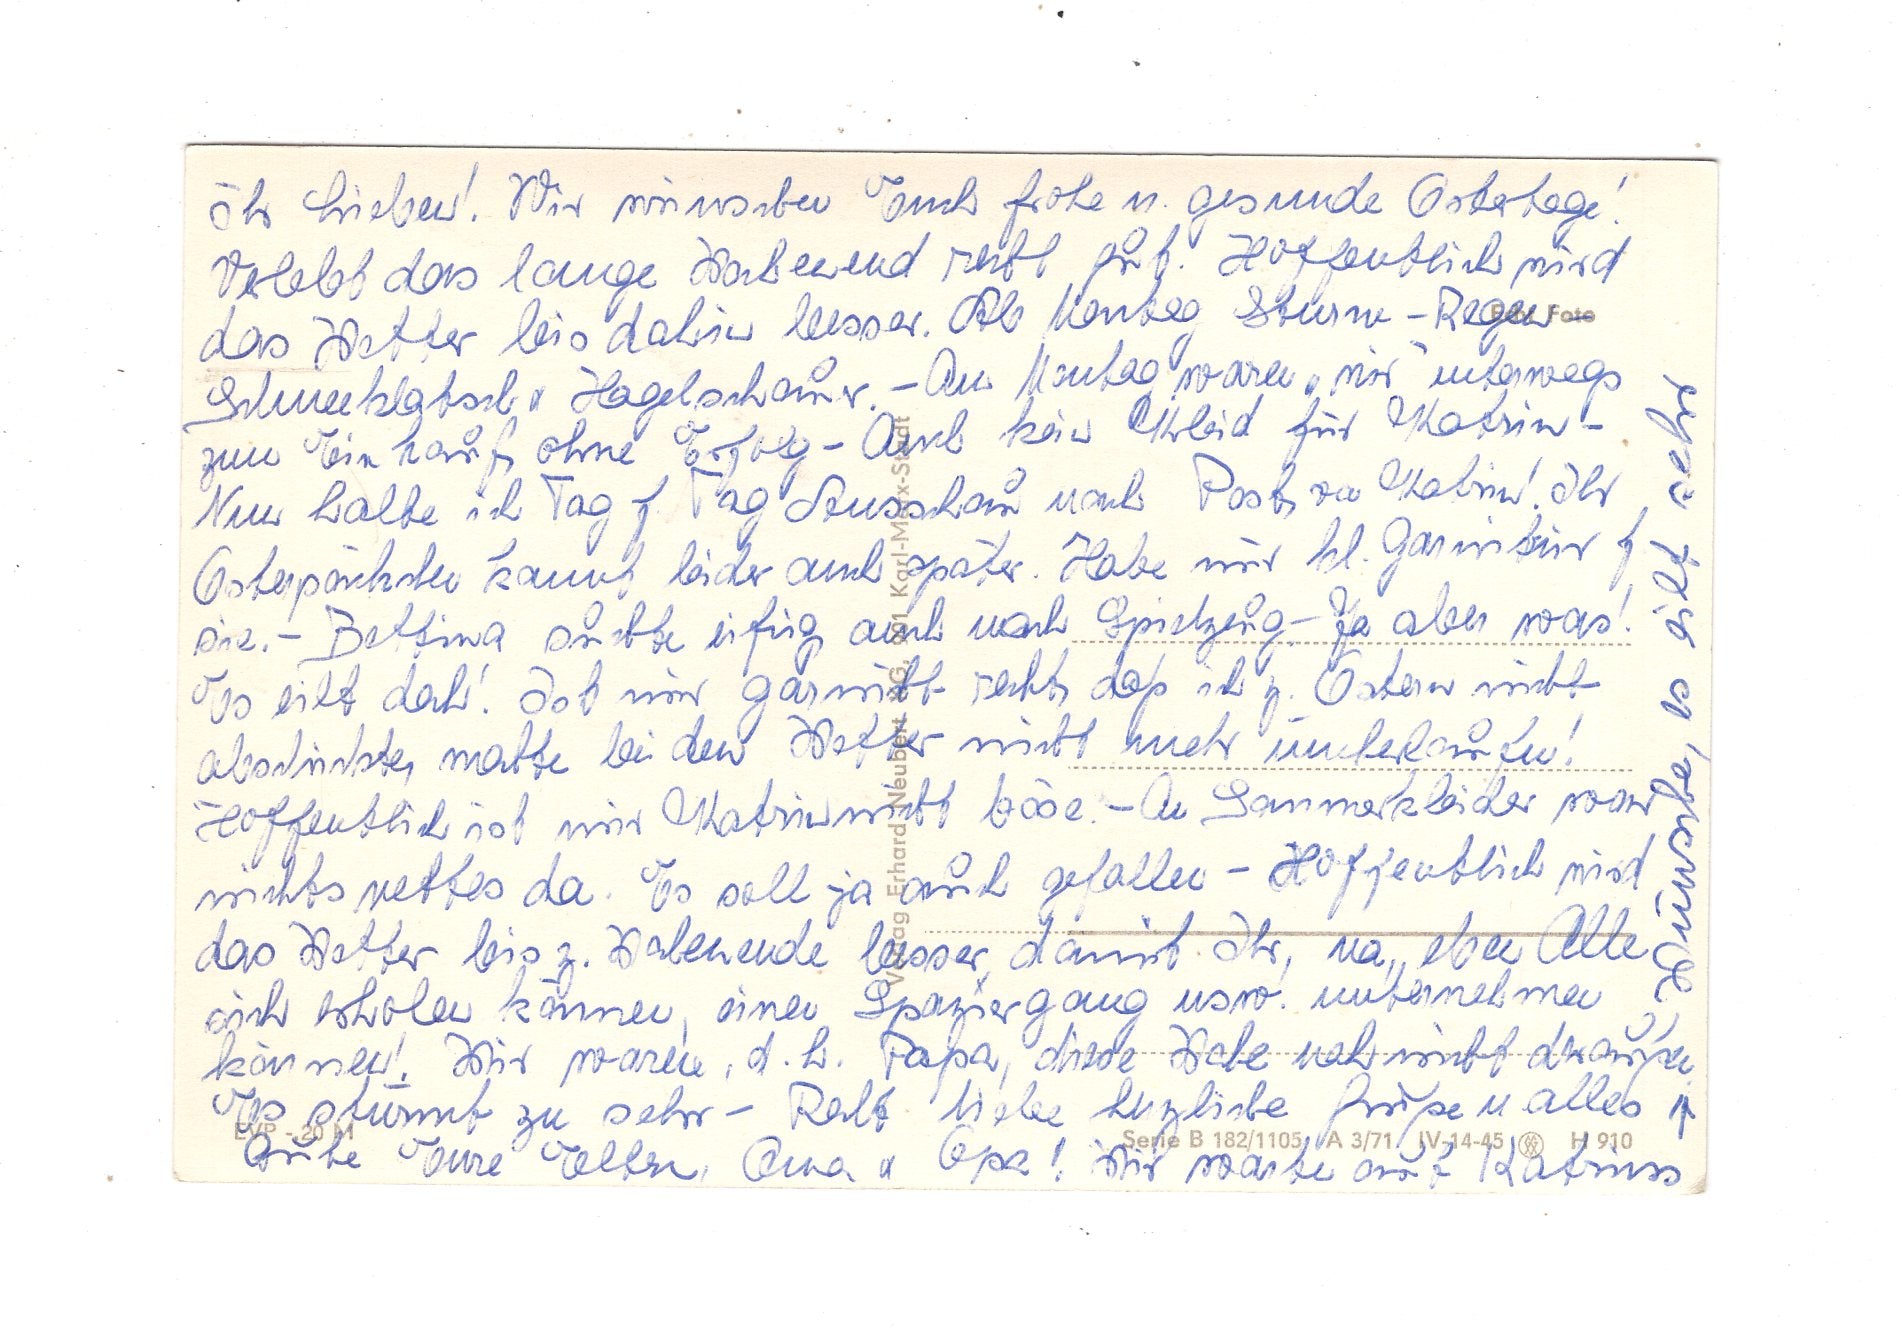 Ihr Lieben! Wir wünschen Euch frohe u. gesunde Ostertage!
Verlebt das lange Wochenend recht gut. Hoffentlich wird
das Wetter bis dahin besser. Ab Montag Sturm – Regen –
Schneeklatsch u Hagelschauer. – Am Montag waren "wir" unterwegs
zum Einkauf, ohne Erfolg – Auch kein Kleid für Katrin –
Nun halte ich Tag f. Tag Ausschau nach Post, va Katrin! Ihr
Osterpäckchen kommt leider auch später. Habe nur kl. Garnitur f
sie. – Bettina suchte eifrig auch nach Spielzeug – Ja aber was!
Es eilt doch! Ist mir garnicht recht, daß ich z. Ostern nicht
abschickte, mochte bei den Wetter nicht mehr
Hoffentlich ist mir Katrin nicht böse. – An Sommerkleider war
nichts nettes da. Es soll ja auch gefallen – Hoffentlich wird
das Wetter bis z. Wochenende besser, damit Ihr, na, eben Alle
sich erholen können, einen Spaziergang usw. unternehmen
können! Wir waren, d. h. Papa, diese Woche noch nicht draußen.
Es stürmt zu sehr – Recht liebe herzliche Grüße u alles
Gute Eure Eltern, Oma u Opa! Wir warte auf Katrins
Wünsche, es eilt sehr
Foto
Verlag Erhard Neubert KG, 901 Karl-Marx-Stadt
EVP -.20 M
Serie B 182/1105 A 3/71 IV-14-45 H 910